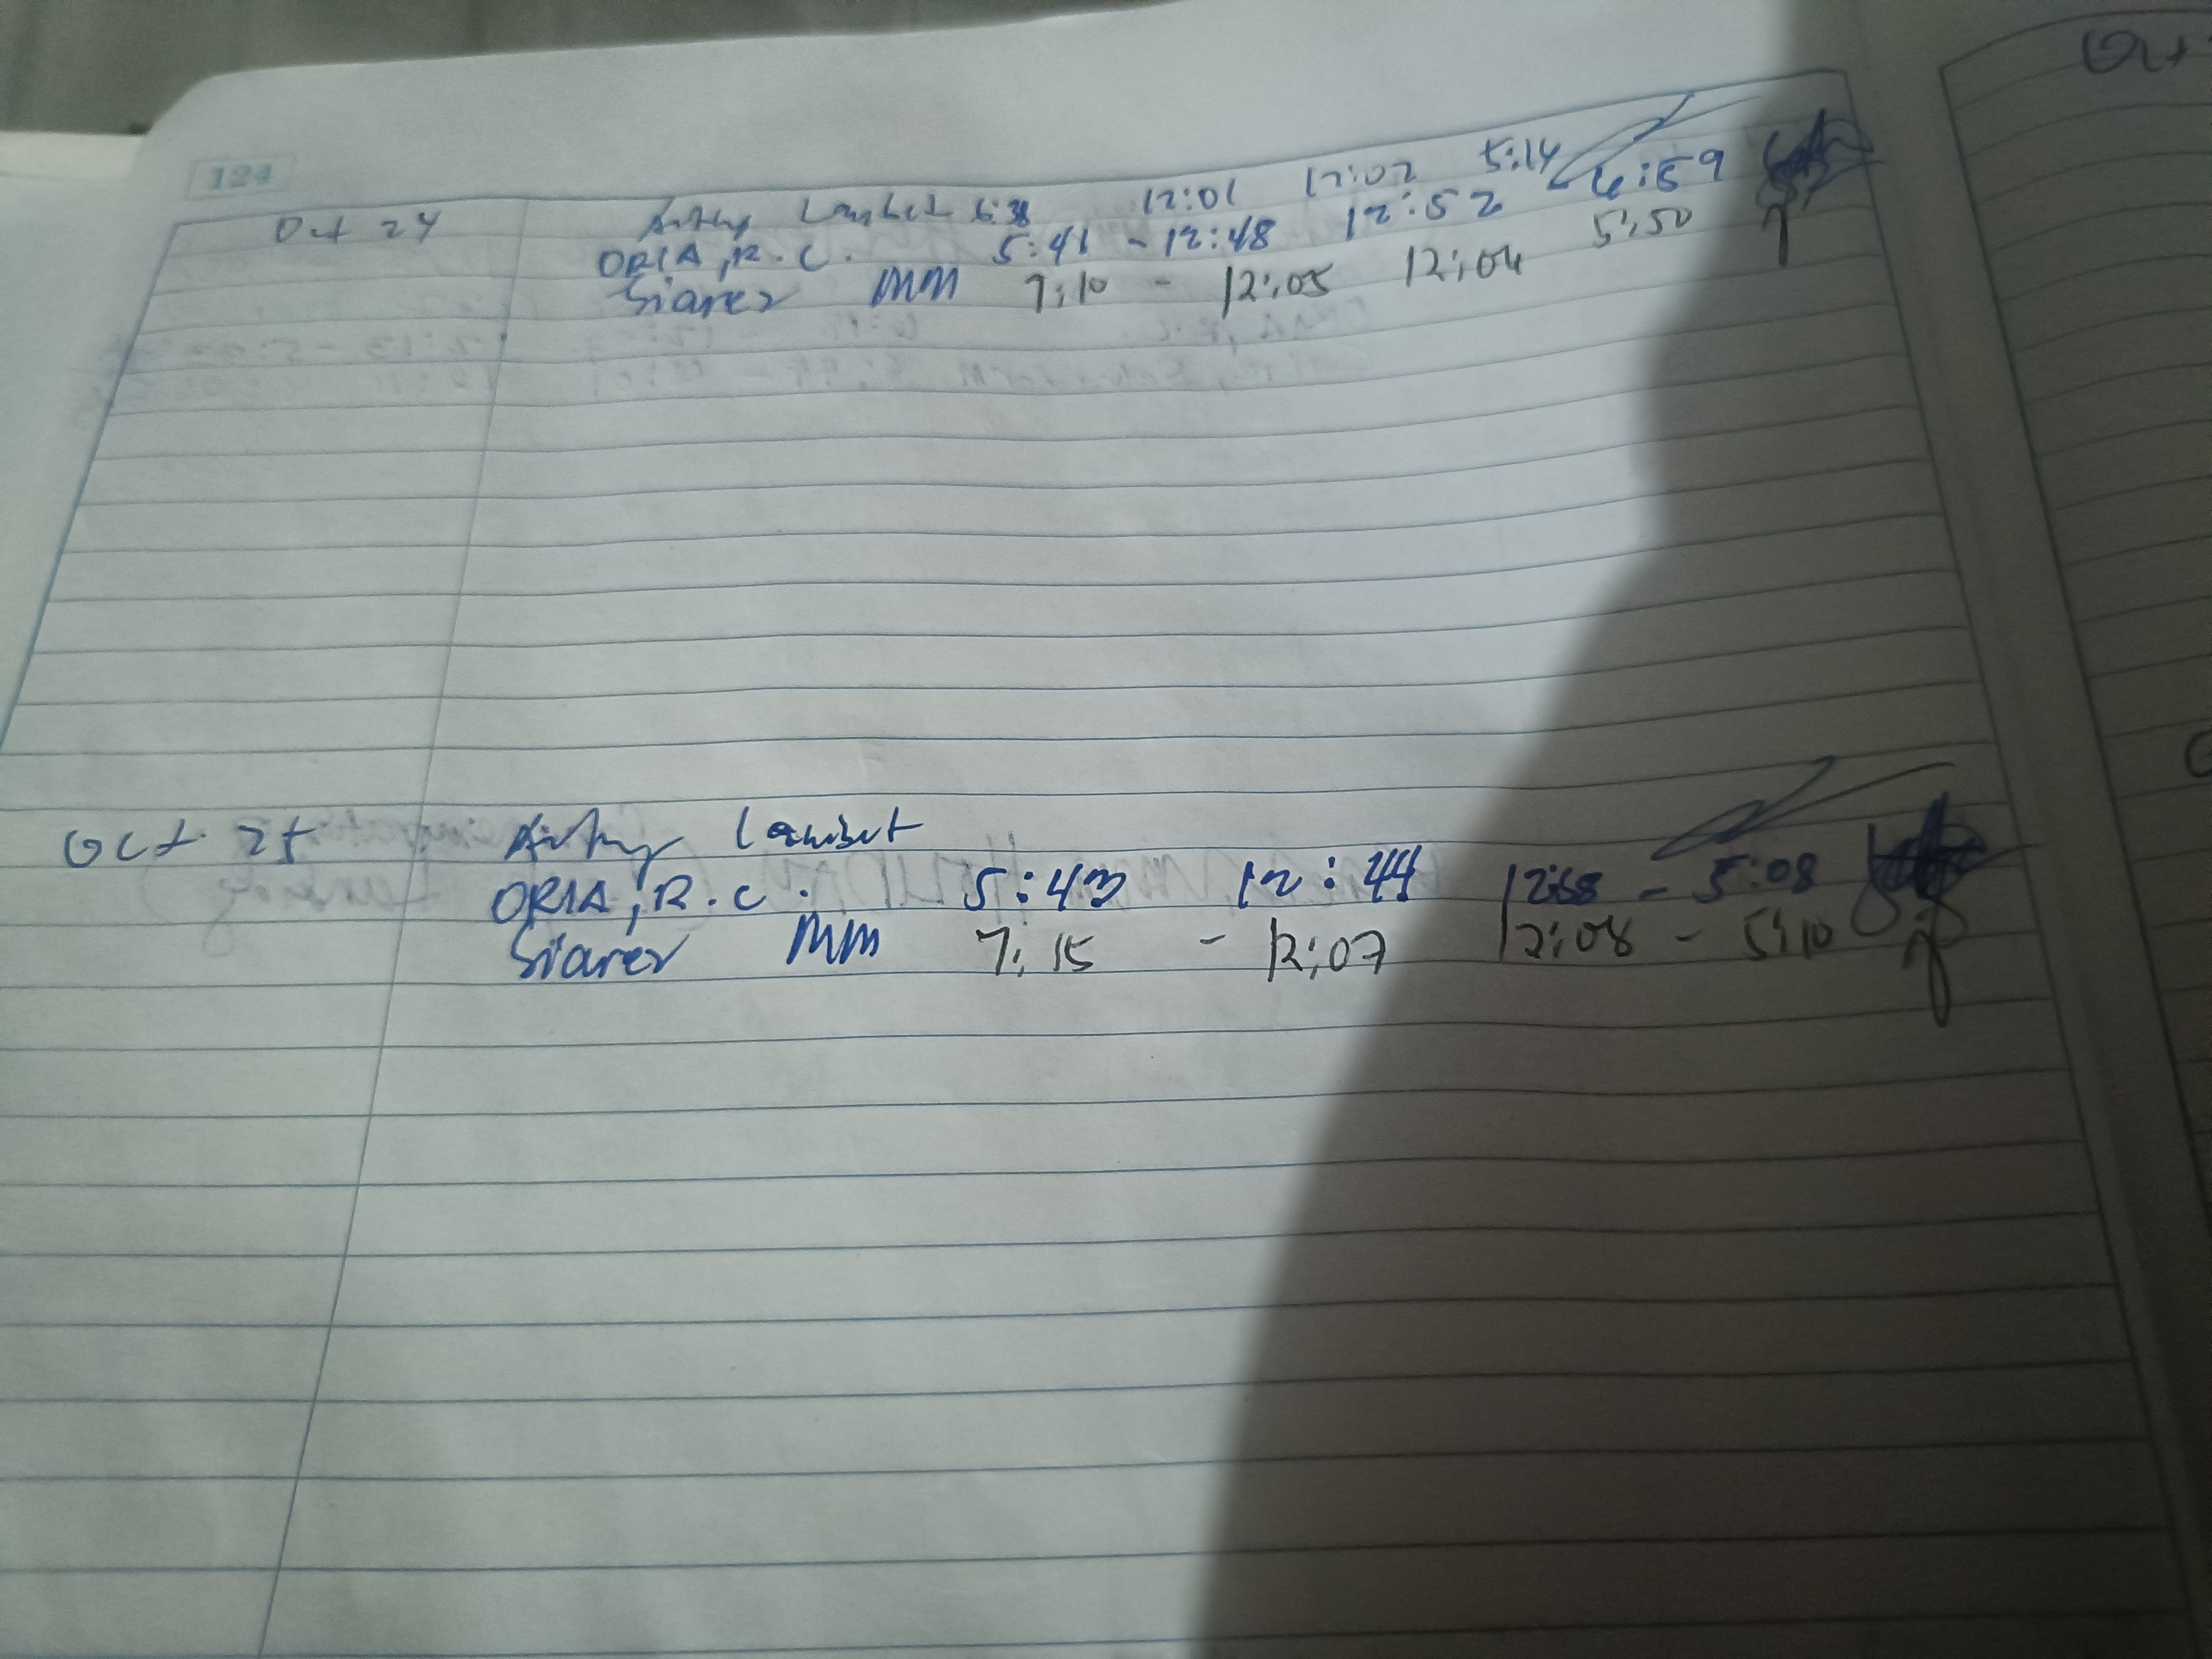 124
Oct 24 Lambet 6:38 12:01 12:02 5:14
ORIA, R. C. 5:41 - 12:48 12:52 6:59
Siarez MM 7:10 - 12:05 12:06 5:50
Oct 25 Lambet
ORIA, R. C. 5:43 12:44 12:58 - 5:08
Siarez MM 7:15 - 12:07 12:08 - 5:10